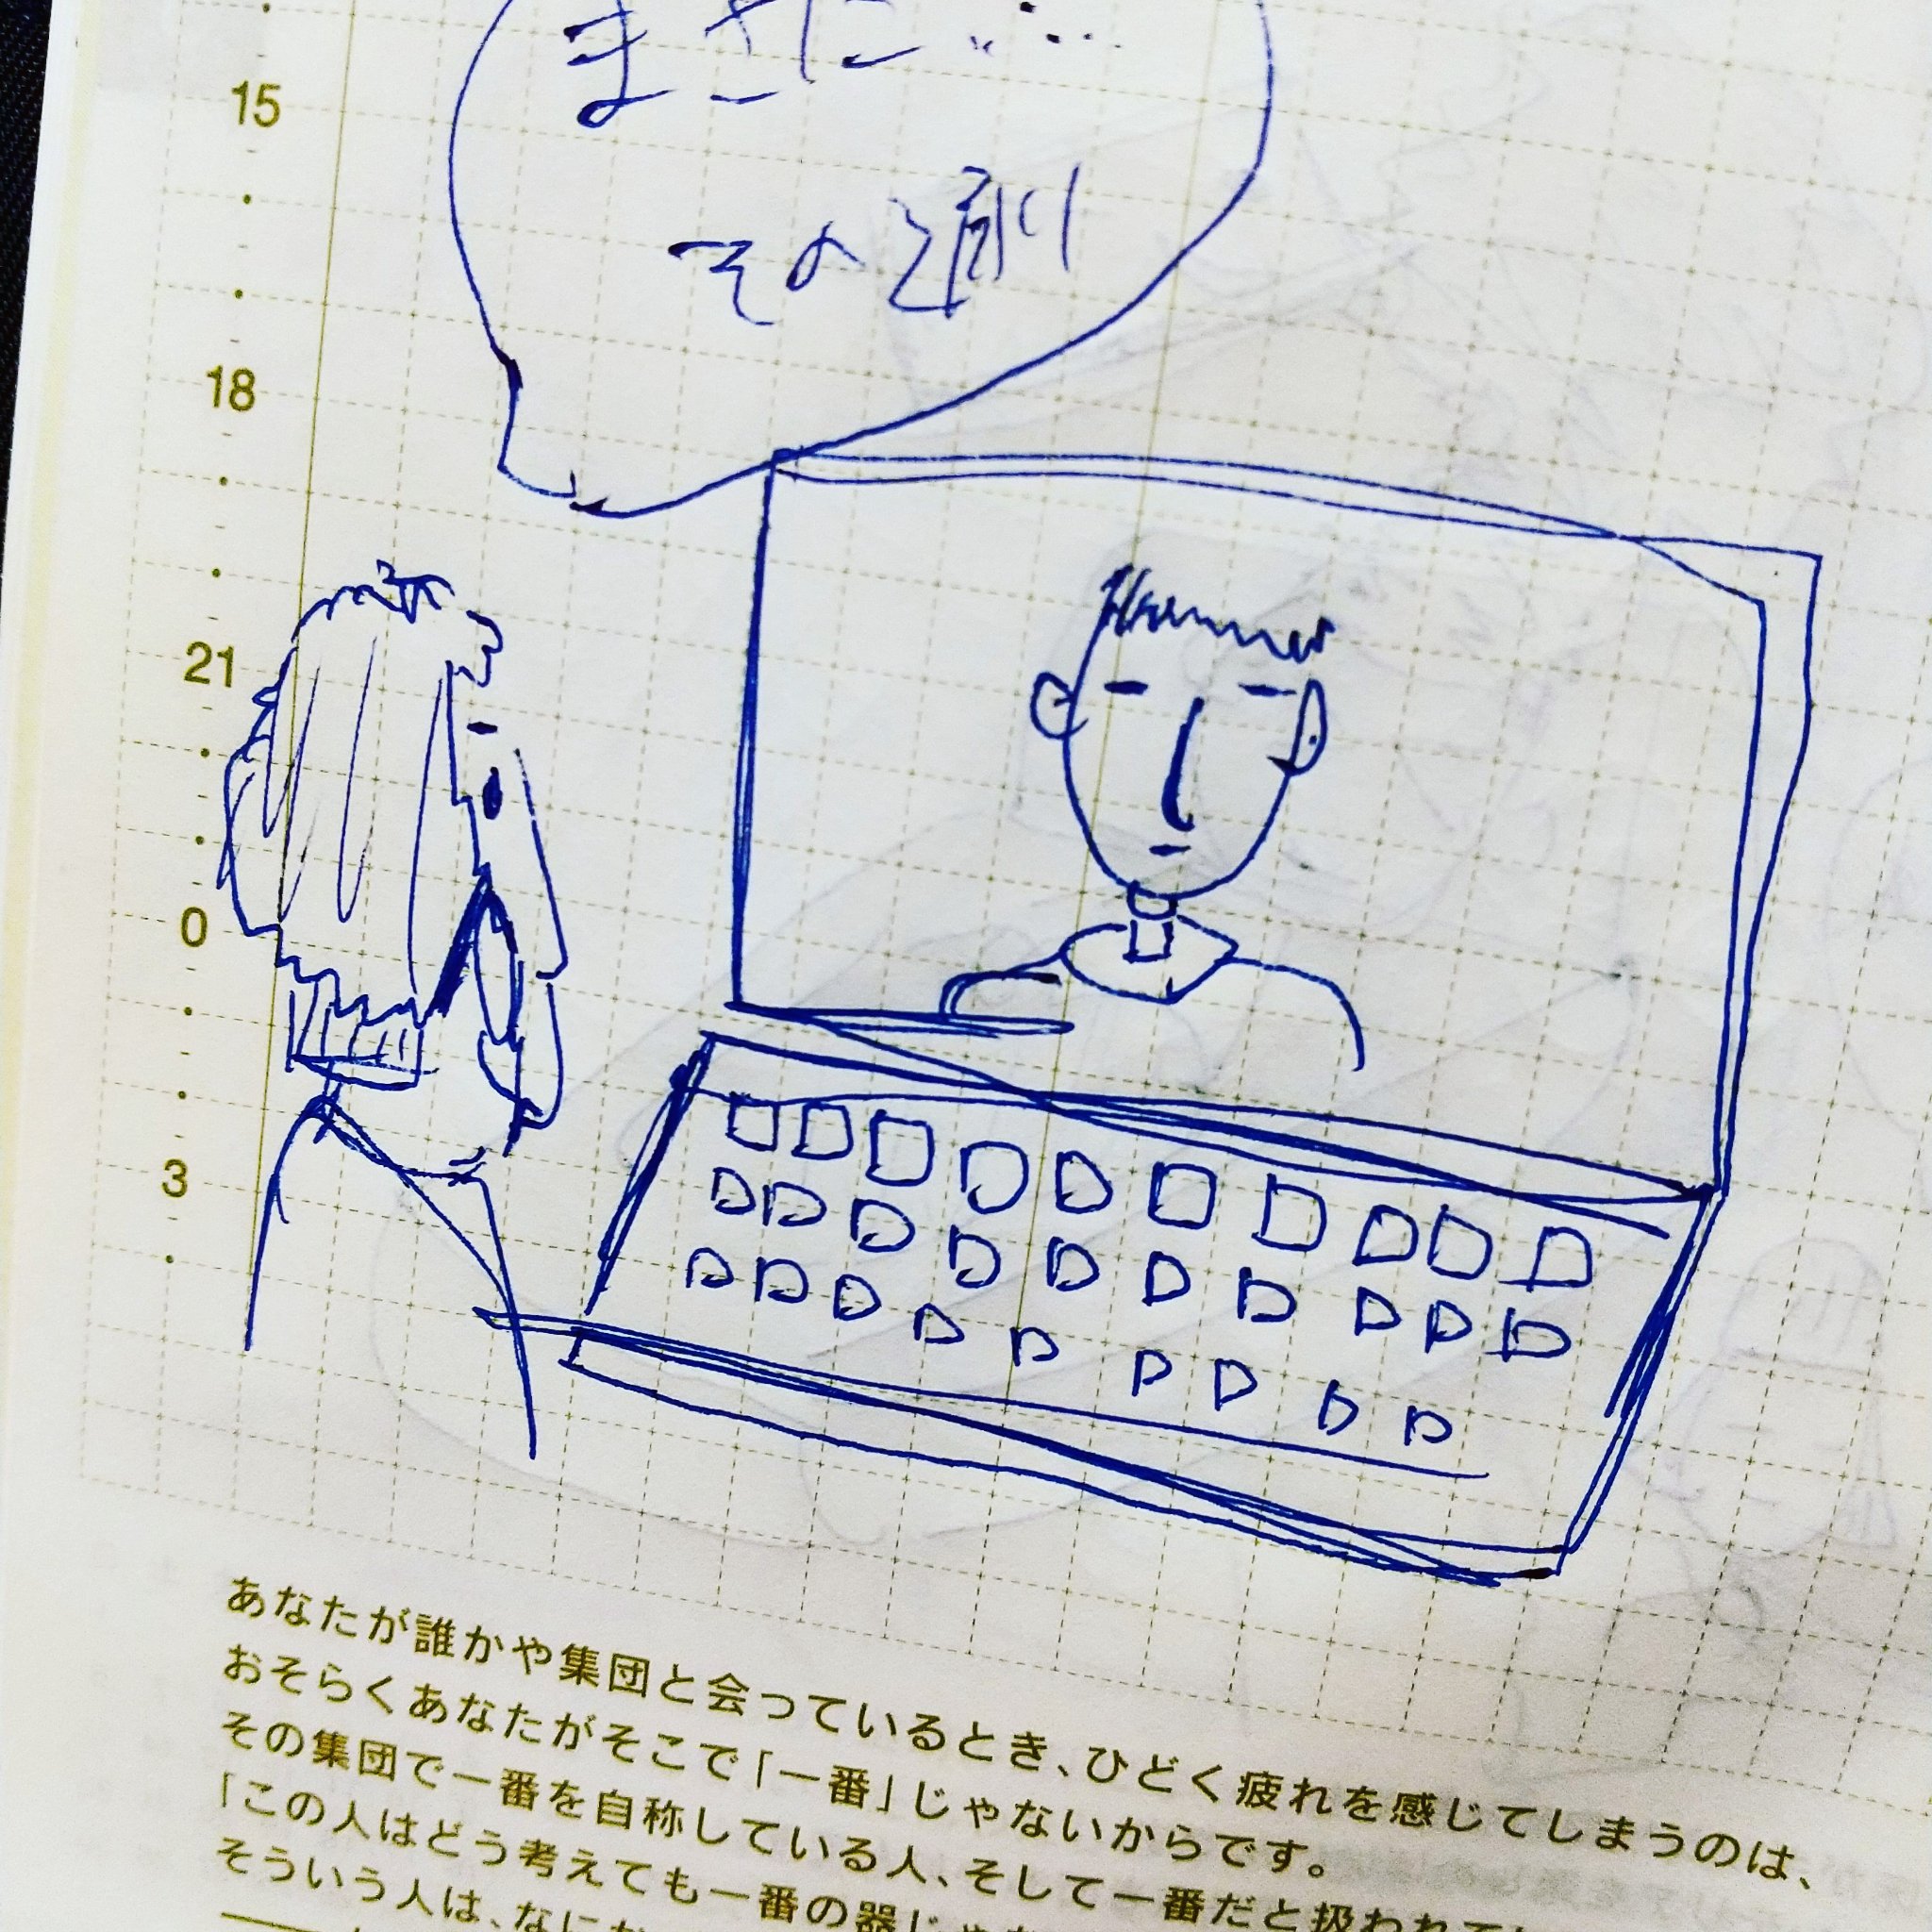 まさに、、…
その通り
15
18
21
0
3
あなたが誰かや集団と会っているとき、ひどく疲れを感じてしまうのは、
おそらくあなたがそこで「一番」じゃないからです。
その集団で一番を自称している人、そして一番だと扱われて
「この人はどう考えても一番の器じゃ
そういう人は、なにか